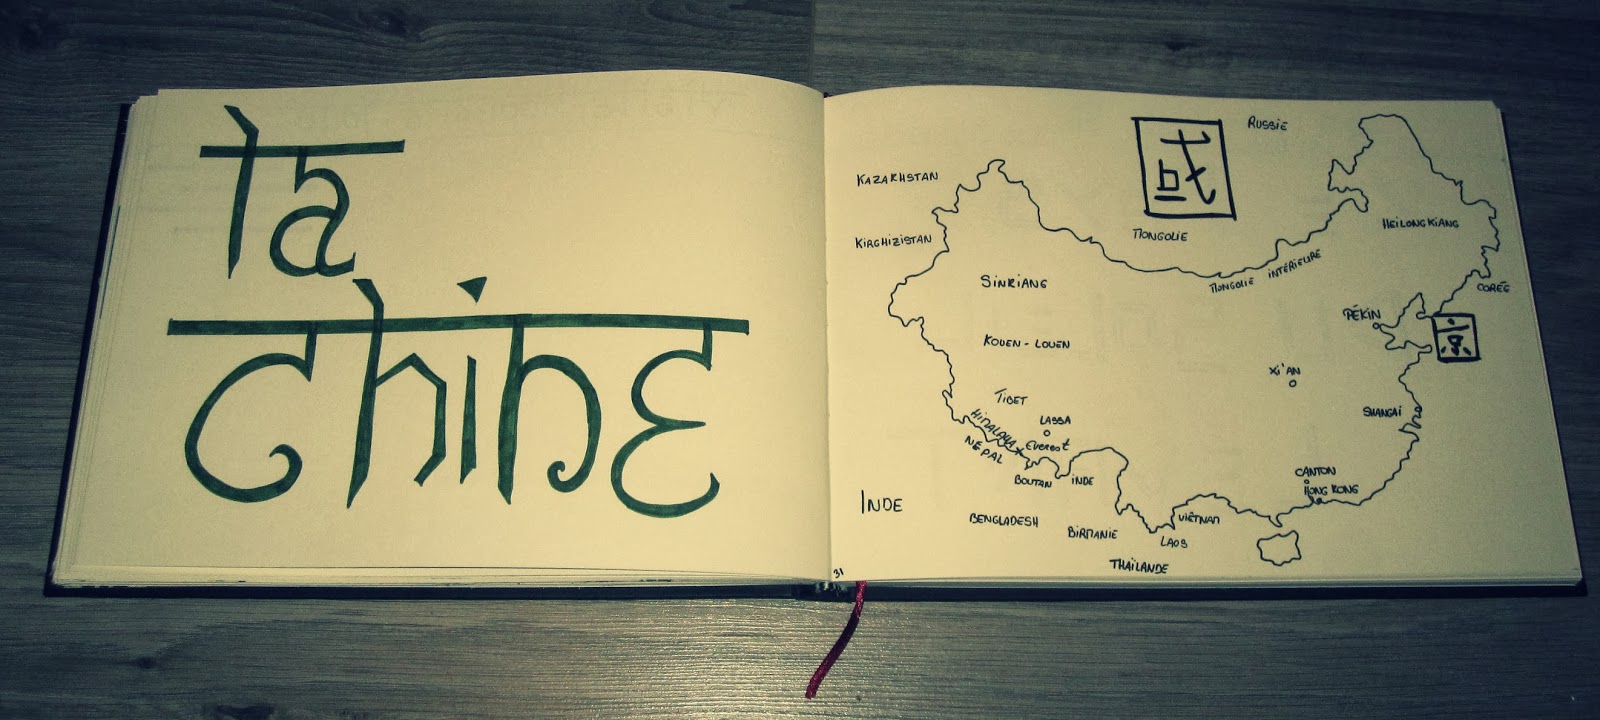 la
chinE
RUSSIE
國
KAZAKHSTAN
HEILONGKIANG
MONGOLIE
KIRGHIZISTAN
MONGOLIE INTÉRIEURE
SINKIANG
CORÉE
PÉKIN
京
KOUEN - LOUEN
XI'AN
TIBET
SHANGAI
HIMALAYA
LASSA
EVEREST
NÉPAL
CANTON
BOUTAN
INDE
HONG KONG
INDE
BENGLADESH
VIÊTNAM
BIRMANIE
LAOS
THAÏLANDE
31